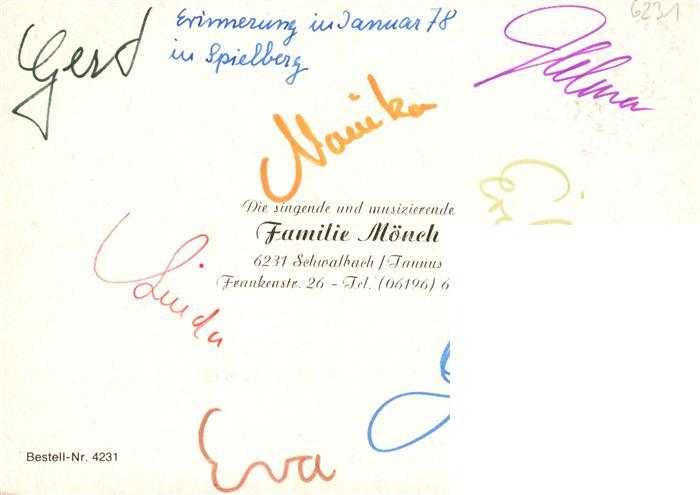 6231
Gerd
Erinnerung in Januar 78
in Spielberg
Helma
Monika
Die singende und musizierende
Familie Mönch
6231 Schwalbach/Taunus
Frankenstr. 26 - Tel. (06196) 6
Linda
Eva
Bestell-Nr. 4231